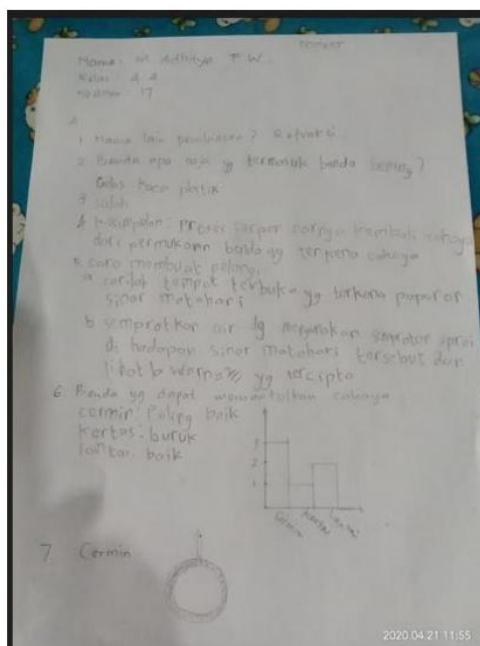 Nama: M Adhitya F W.
Kelas: 4 a
No absen: 17
A
1 Nama lain pembiasan? Refraksi
2 Benda apa saja yg termasuk benda bening?
Gelas kaca plastik
3 salah
4 kesimpulan: proses terpancarnya kembali cahaya
dari permukaan benda yg terkena cahaya
5 cara membuat pelangi
a carilah tempat terbuka yg terkena paparan
sinar matahari
b semprotkan air dg menggunakan
di hadapan sinar matahari tersebut dan
lihat warna yg tercipta
6. Benda yg dapat memantulkan cahaya
cermin: Paling baik
kertas: buruk
lantai: baik
3
2
1
Cermin Kertas Lantai
7. Cermin
2020.04.21 11:55